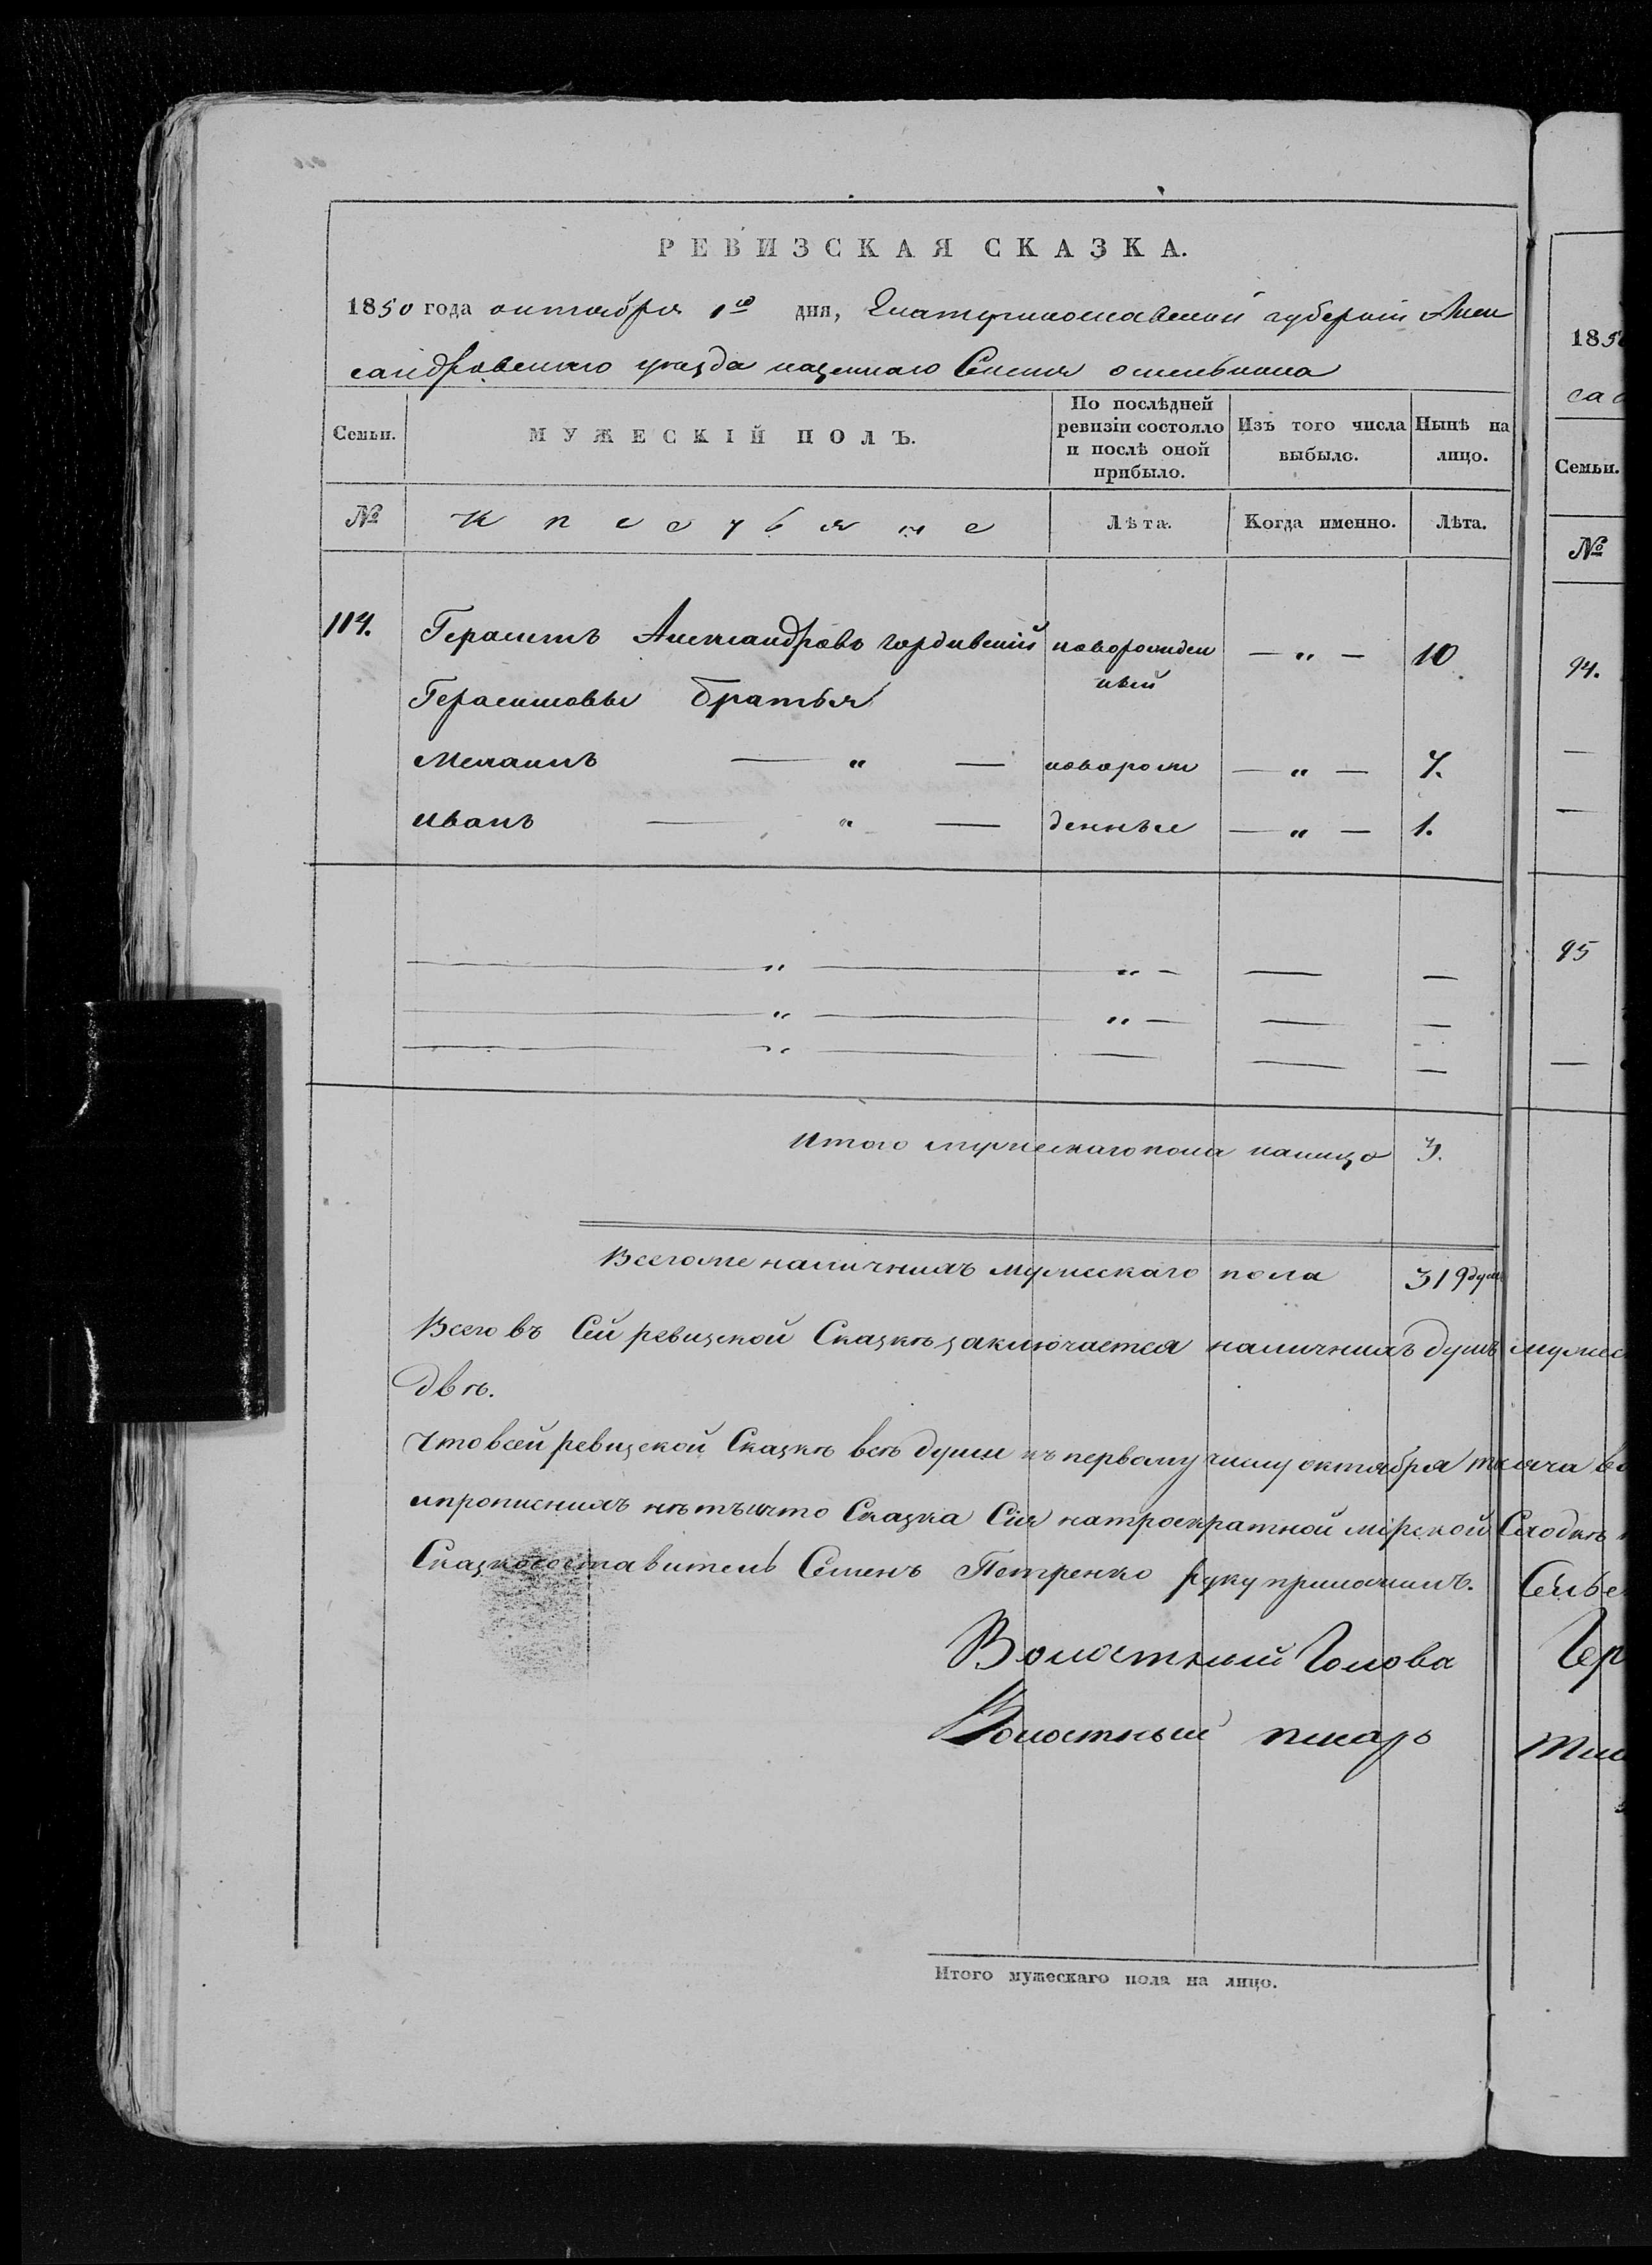 РЕВИЗСКАЯ СКАЗКА.
1850 года октября 1го дня, Екатеринославской губернiи Алек
сандровскаго уезда казеннаго Селенiя
Семьи.
МУЖЕСКІЙ ПОЛЪ.
По послѣдней ревизіи состояло и послѣ оной прибыло.
Изъ того числа выбыло.
Нынѣ на лицо.
№
Крестьяне
Лѣта.
Когда именно.
Лѣта.
114. Герасимъ Александровъ Гордивскiй новорожден ный — „ — 10
Герасимовы братья
— „ — новорож — „ — 7.
Иванъ — „ — денные — „ — 1.
— „ — „ — — —
— „ — „ — — —
— „ — — — —
Итого мужескаго пола налицо 3.
Всего же наличныхъ мужескаго пола 319 душъ
Всего въ Сей ревизской Сказкѣ заключается наличныхъ душъ мужес
двѣ.
Что в сей ревизской Сказкѣ всѣ души къ первому числу октября тысяча во
и прописныхъ нѣтъ и что Сказка Сiя на троекратной мiрской Сходкѣ
Сказкосоставитель Семенъ Петренко руку приложилъ. Сельс
Волостный Голова Чер
Волостный писарь
Итого мужескаго пола на лицо.
185
са
Семьи.
№
94.
—
—
95
—